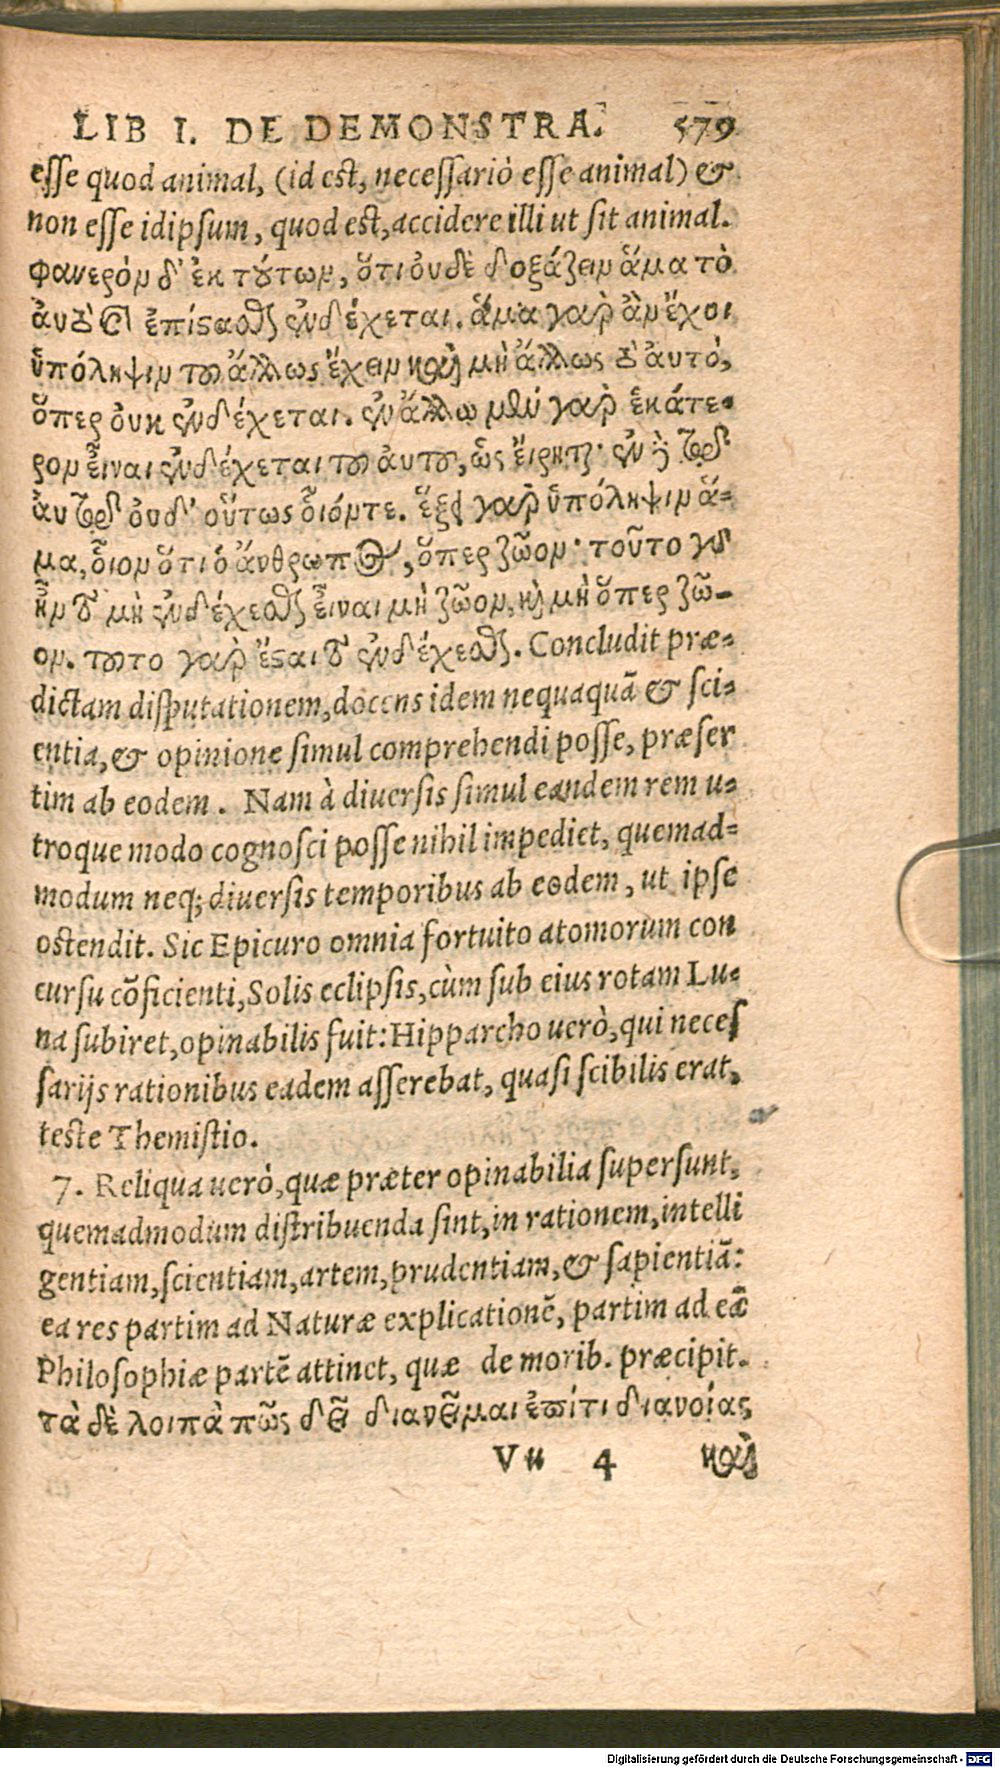 LIB I. DE DEMONSTRA. 579
esse quod animal, (id est, necessariò esse animal) &
non esse idipsum, quod est, accidere illi ut sit animal.
φανερὸν δ' ἐκ τούτων, ὅτι οὐδὲ δοξάζειν ἅμα τὸ
αὐτὸ καὶ ἐπίστασθαι ἐνδέχεται. ἅμα γαρ ἂν ἔχοι
ὑπόληψιν τοῦ ἄλλως ἔχειν καὶ μὴ ἄλλως τὸ αυτό,
ὅπερ οὐκ ἐνδέχεται. ἐν ἄλλῳ μὲν γαρ ἑκάτε-
ρον εἶναι ἐνδέχεται τοῦ αὐτοῦ, ὡς εἴρηται· ἐν δὲ τῷ
αὐτῷ οὐδ' οὕτως οἷόντε. ἕξει γαρ ὑπόληψιν ἅ=
μα, οἷον ὅτι ὁ ἄνθρωπος, ὅπερ ζῶον· τοῦτο γὰρ
ἦν τὸ μὴ ἐνδέχεσθαι εἶναι μὴ ζῶον, καὶ μὴ ὅπερ ζῶ-
ον. τοῦτο γαρ ἔσται τὸ ἐνδέχεσθαι. Concludit præ=
dictam disputationem, docens idem nequaquã & sci=
entia, & opinione simul comprehendi posse, præser
tim ab eodem. Nam à diuersis simul eandem rem u=
troque modo cognosci posse nihil impediet, quemad=
modum neq; diuersis temporibus ab eodem, ut ipse
ostendit. Sic Epicuro omnia fortuito atomorum con
cursu cõficienti, Solis eclipsis, cùm sub eius rotam Lu=
na subiret, opinabilis fuit: Hipparcho uerò, qui neces
sarijs rationibus eadem asserebat, quasi scibilis erat,
teste Themistio.
7. Reliqua uerò, quæ præter opinabilia supersunt,
quemadmodum distribuenda sint, in rationem, intelli
gentiam, scientiam, artem, prudentiam, & sapientiã:
ea res partim ad Naturæ explicationẽ, partim ad eã
Philosophiæ partẽ attinet, quæ de morib. præcipit.
τὰ δὲ λοιπὰ πῶς δεῖ διανεῖμαι ἐπίτε διανοίας
Vu 4 καὶ
Digitalisierung gefördert durch die Deutsche Forschungsgemeinschaft - DFG